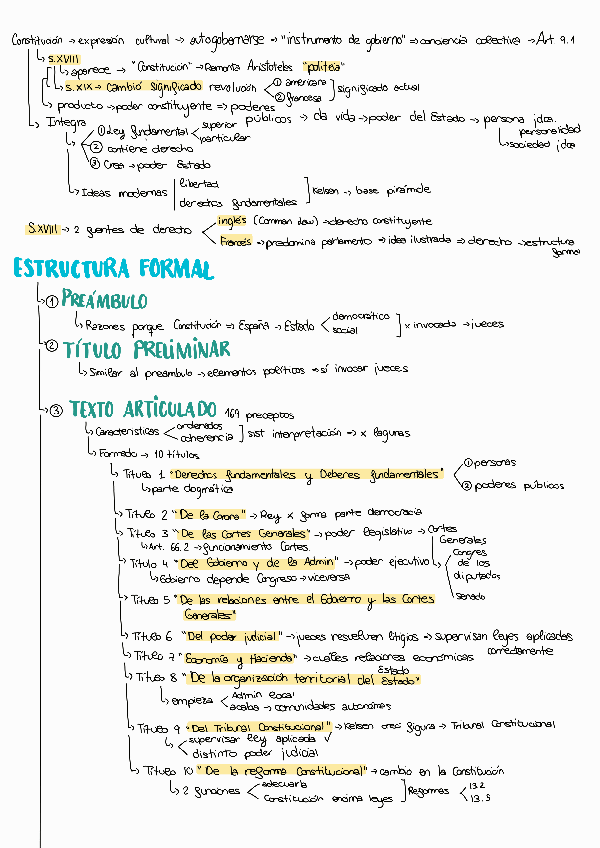 Constitución → expresión cultural → autogobernarse → "instrumento de gobierno" → conciencia colectiva → Art 9.1
↳ S.XVIII
↳ aparece → "Constitución" → Remonta Aristóteles "politeia"
↳ S.XIX → Cambió significado revolución ① americana ② francesa ] significado actual
↳ producto → poder constituyente → poderes públicos → da vida → poder del Estado → persona jdca.
personalidad
↳ sociedad jdca
↳ Integra
① Ley fundamental superior particular
② contiene derecho
③ Crea → poder Estado
↳ Ideas modernas | libertad derechos fundamentales ] Kelsen → base pirámide
S.XVIII → 2 fuentes de derecho
inglés (Common law) → derecho constituyente
Francés → predomina parlamento → idea ilustrada → derecho → estructura formal
ESTRUCTURA FORMAL
↳ ① PREÁMBULO
↳ Razones porque Constitución → España → Estado democrático social ] x invocado → jueces
↳ ② TÍTULO PRELIMINAR
↳ Similar al preámbulo → elementos políticos → sí invocar jueces
↳ ③ TEXTO ARTICULADO 169 preceptos
↳ Características ordenados coherencia ] sist interpretación → x lagunas
↳ Formado → 10 títulos
↳ Título 1 "Derechos fundamentales y Deberes fundamentales" ① personas ② poderes públicos
↳ parte dogmática
↳ Título 2 "De la Corona" → Rey x forma parte democracia
↳ Título 3 "De las Cortes Generales" → poder legislativo → Cortes Generales
↳ Art. 66.2 → funcionamiento Cortes.
↳ Título 4 "Del Gobierno y de la Admin" → poder ejecutivo ↳ Congres de los diputados
↳ Gobierno depende Congreso → viceversa
↳ Senado
↳ Título 5 "De las relaciones entre el Gobierno y las Cortes Generales"
↳ Título 6 "Del poder judicial" → jueces resuelven litigios → supervisan leyes aplicadas correctamente
↳ Título 7 "Economía y Hacienda" → cuáles relaciones económicas Estado
↳ Título 8 "De la organización territorial del Estado"
↳ empieza Admin local
acaba → comunidades autonómas
↳ Título 9 "Del Tribunal Constitucional" → Kelsen creó figura → Tribunal Constitucional
↳ supervisar ley aplicada ✓
distinto poder judicial
↳ Título 10 "De la reforma Constitucional" → cambio en la Constitución
↳ 2 funciones adecuarla
Constitución encima leyes ] Reformas 13.2 13.5